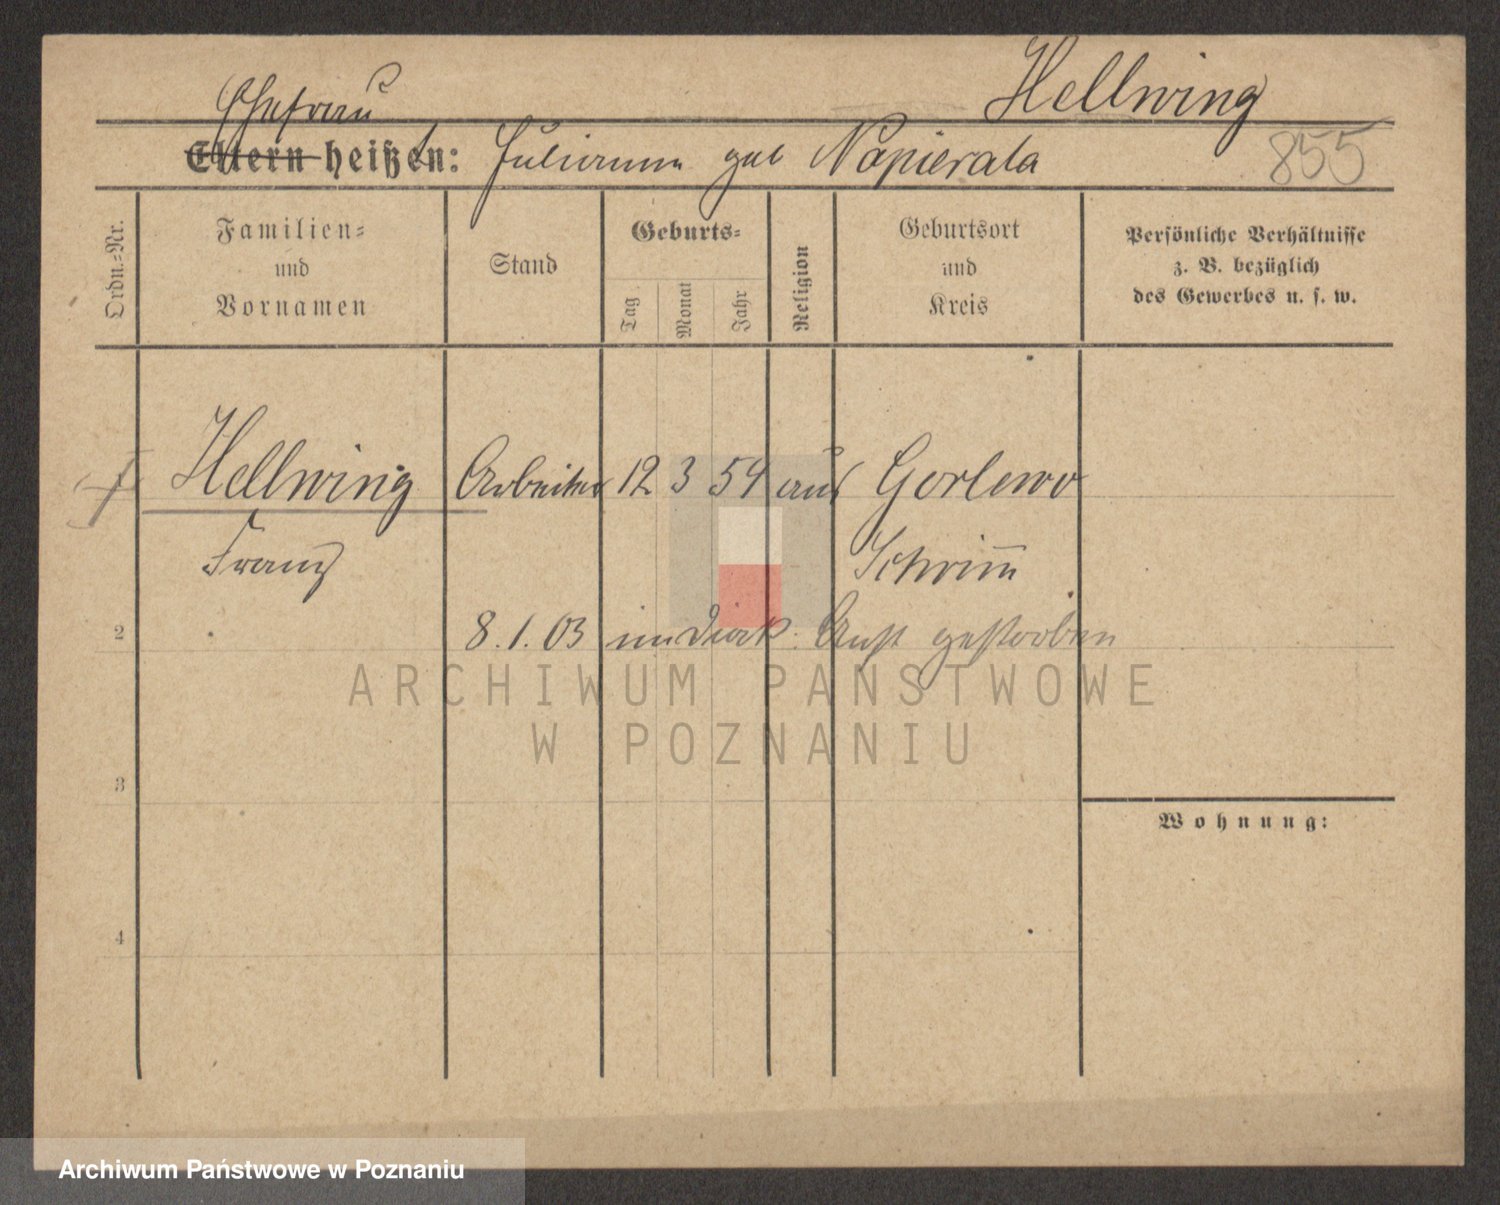 Hellwing
Ehefrau
Eltern heißen: Julianna geb Napierala
855
Ordn.=Nr.
Familien=
und
Vornamen
Stand
Geburts=
Tag
Monat
Jahr
Religion
Geburtsort
und
Kreis
Persönliche Verhältnisse
z. B. bezüglich
des Gewerbes u. s. w.
Hellwing Arbeiter 12 3 54 aus Gorlewo
Franz Schrimm
2
8. 1. 03 im Diak. Anst gestorben
ARCHIWUM PAŃSTWOWE
W POZNANIU
3
Wohnung:
4
Archiwum Państwowe w Poznaniu